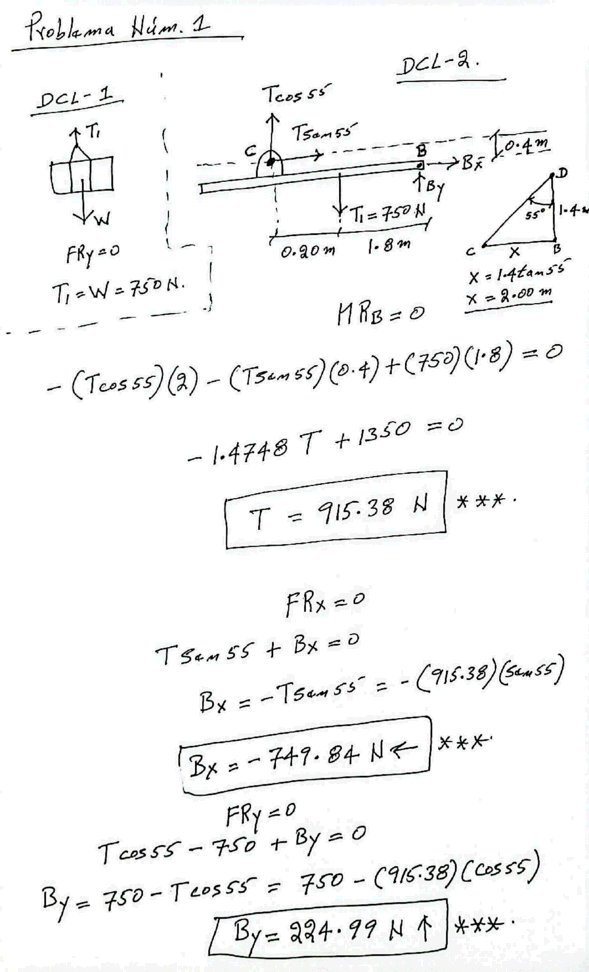 Problema Núm. 1
DCL-1
T₁
W
FRy=0
T₁=W=750 N.
DCL-2.
Tcos55
Tsen55
C
B
Bx
0.4 m
By
T₁=750 N
0.20 m
1.8 m
D
55°
1.4 m
C
X
B
X = 1.4tan55
X = 2.00 m
MRB = 0
-(Tcos55)(2) - (Tsen55)(0.4) + (750)(1.8) = 0
- 1.4748 T + 1350 = 0
T = 915.38 N ***.
FRx = 0
Tsen55 + Bx = 0
Bx = -Tsen55 = -(915.38)(sen55)
Bx = - 749.84 N ← ***.
FRy = 0
Tcos55 - 750 + By = 0
By = 750 - Tcos55 = 750 - (915.38)(cos55)
By = 224.99 N ↑ ***.